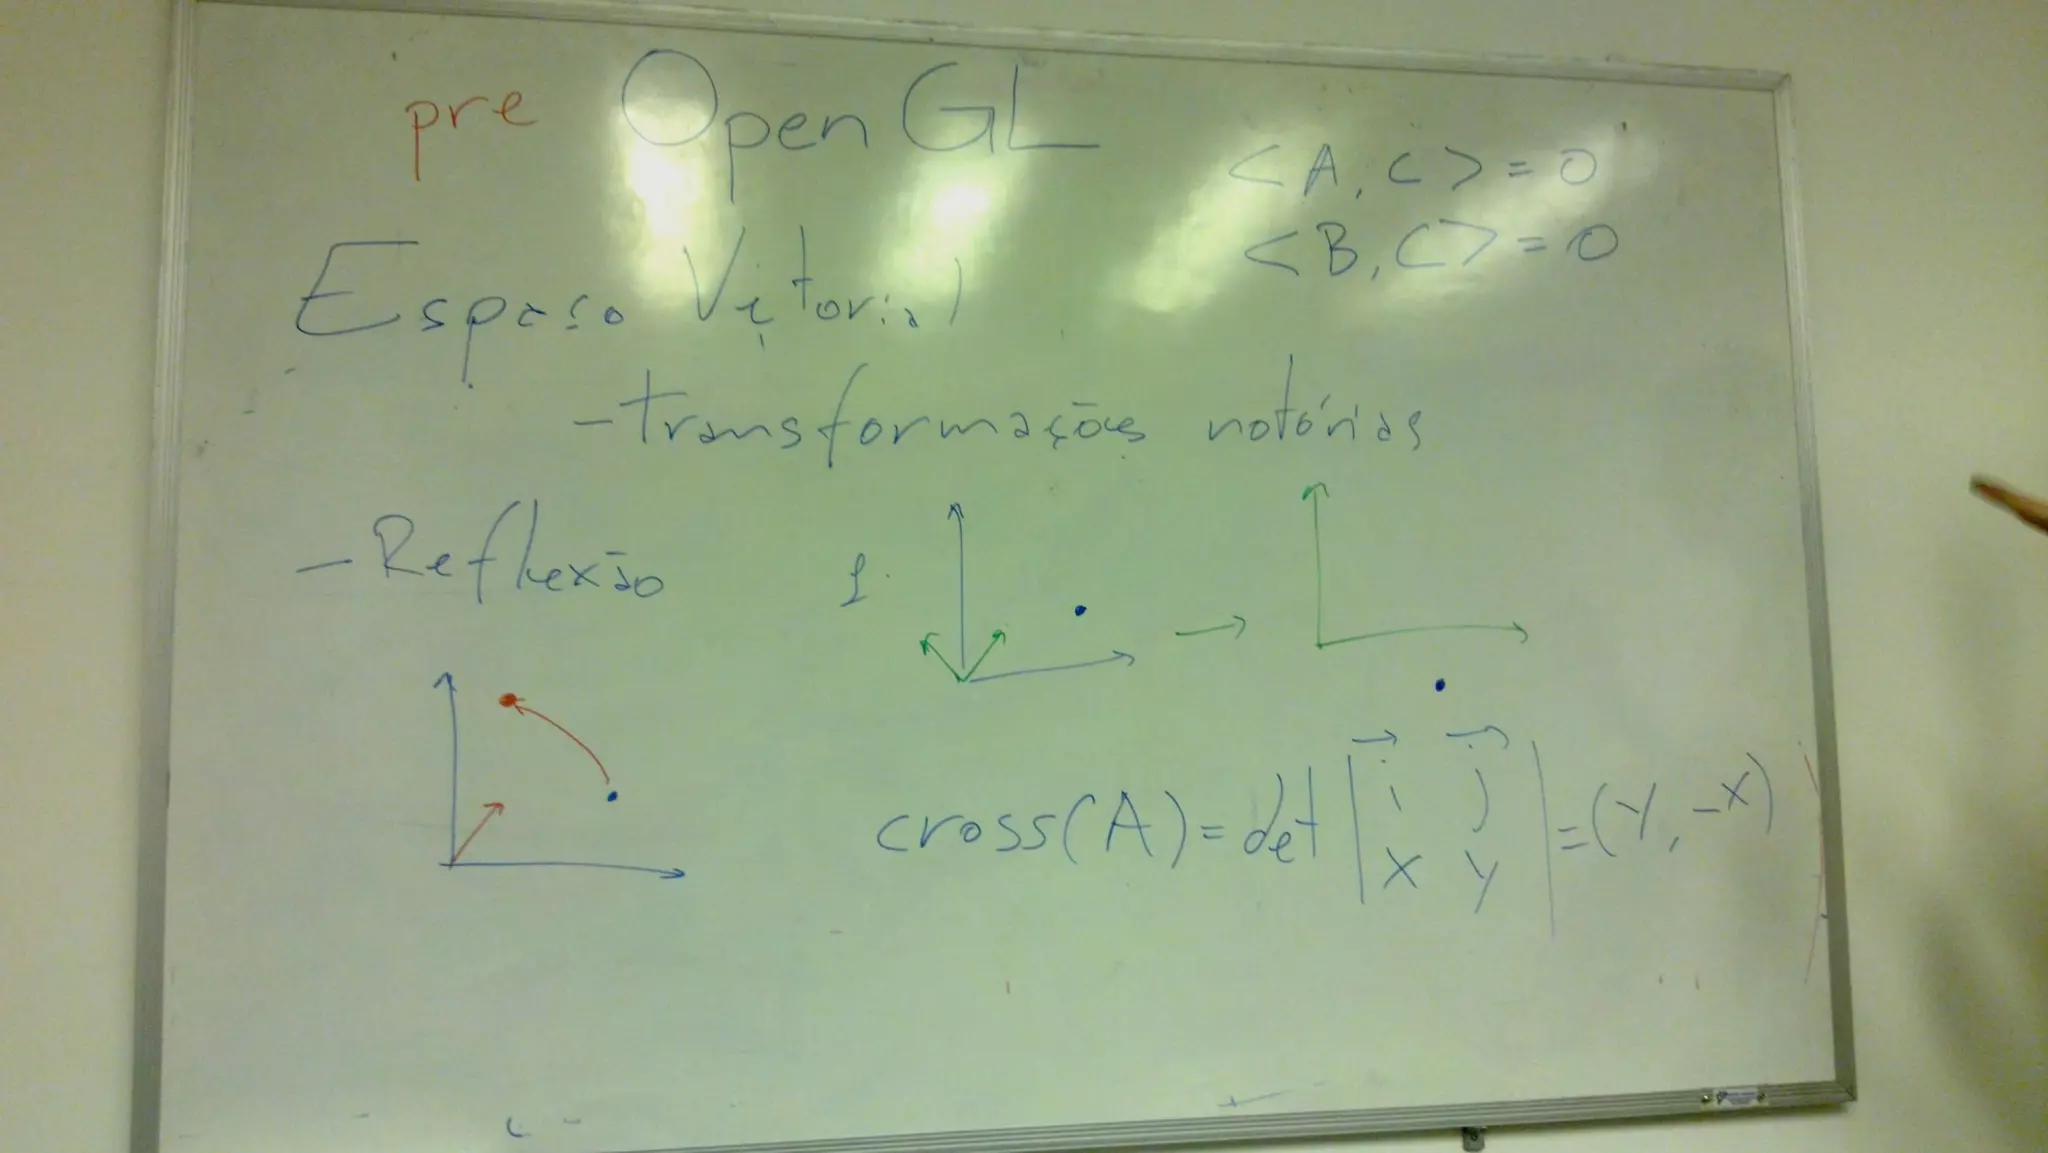 pre OpenGL
<A, C> = 0
<B, C> = 0
Espaço Vetorial
- transformações notórias
- Reflexão
1.
cross(A) = det | i j | = (y, -x)
x y